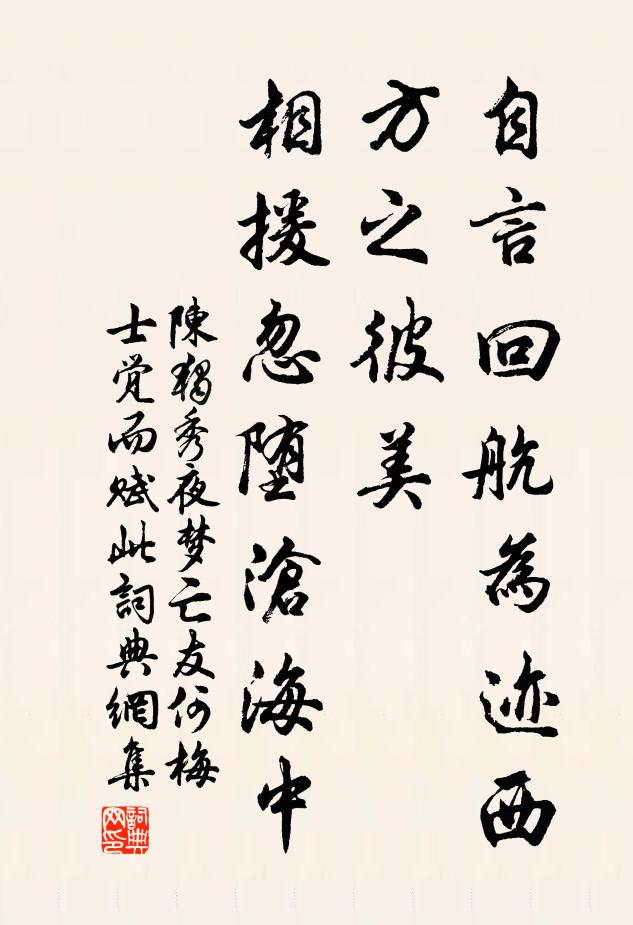 自言回航為迹西
方之彼美
相援忽堕滄海中
陳獨秀夜梦亡友何梅
士覚而赋此詞典網集
詞典網印